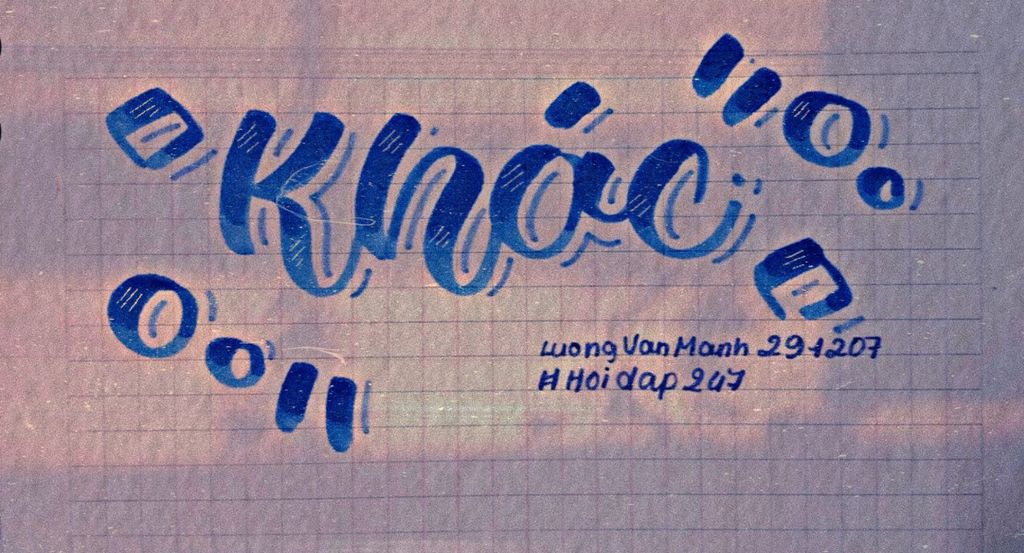 Khác
Luong Van Manh 291207
H Hoi dap 247